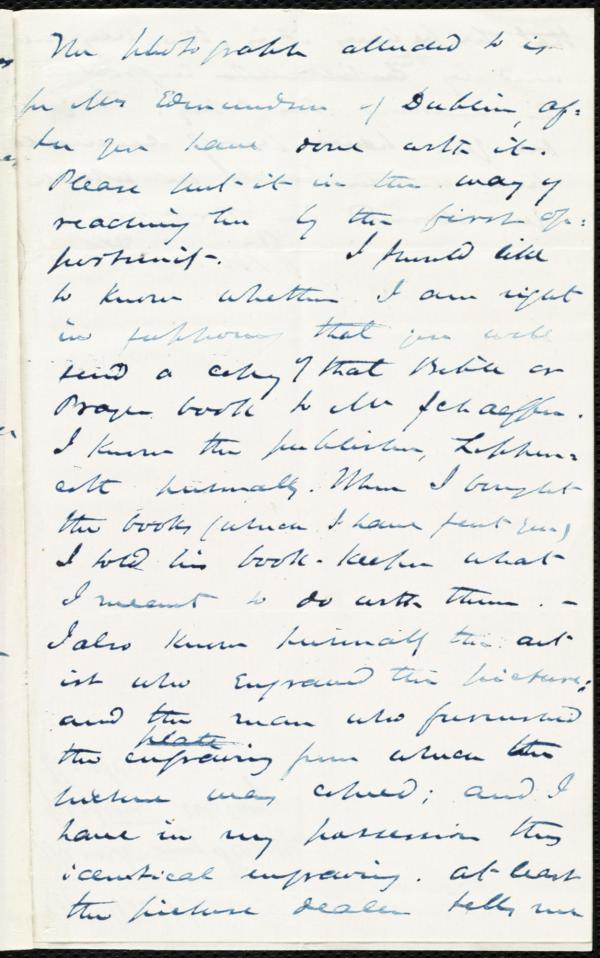 The photograph alluded to is
for Mrs Edmundson of Dublin, af=
ter you have done with it.
Please put it in the way of
reaching her by the first op=
portunity. I should like
to know whether I am right
in supposing that you will
send a copy of that Bible or
Prayer book to Mr Schaeffer.
I know the publisher, Lippin=
cott personally. When I bought
the books (which I have sent you)
I told his book-keeper what
I meant to do with them. –
I also know personally the art
ist who engraved the picture;
and the man who furnished
plate
the engraving from which the
picture was copied; and I
have in my possession this
identical engraving. at least
the picture dealer tells me